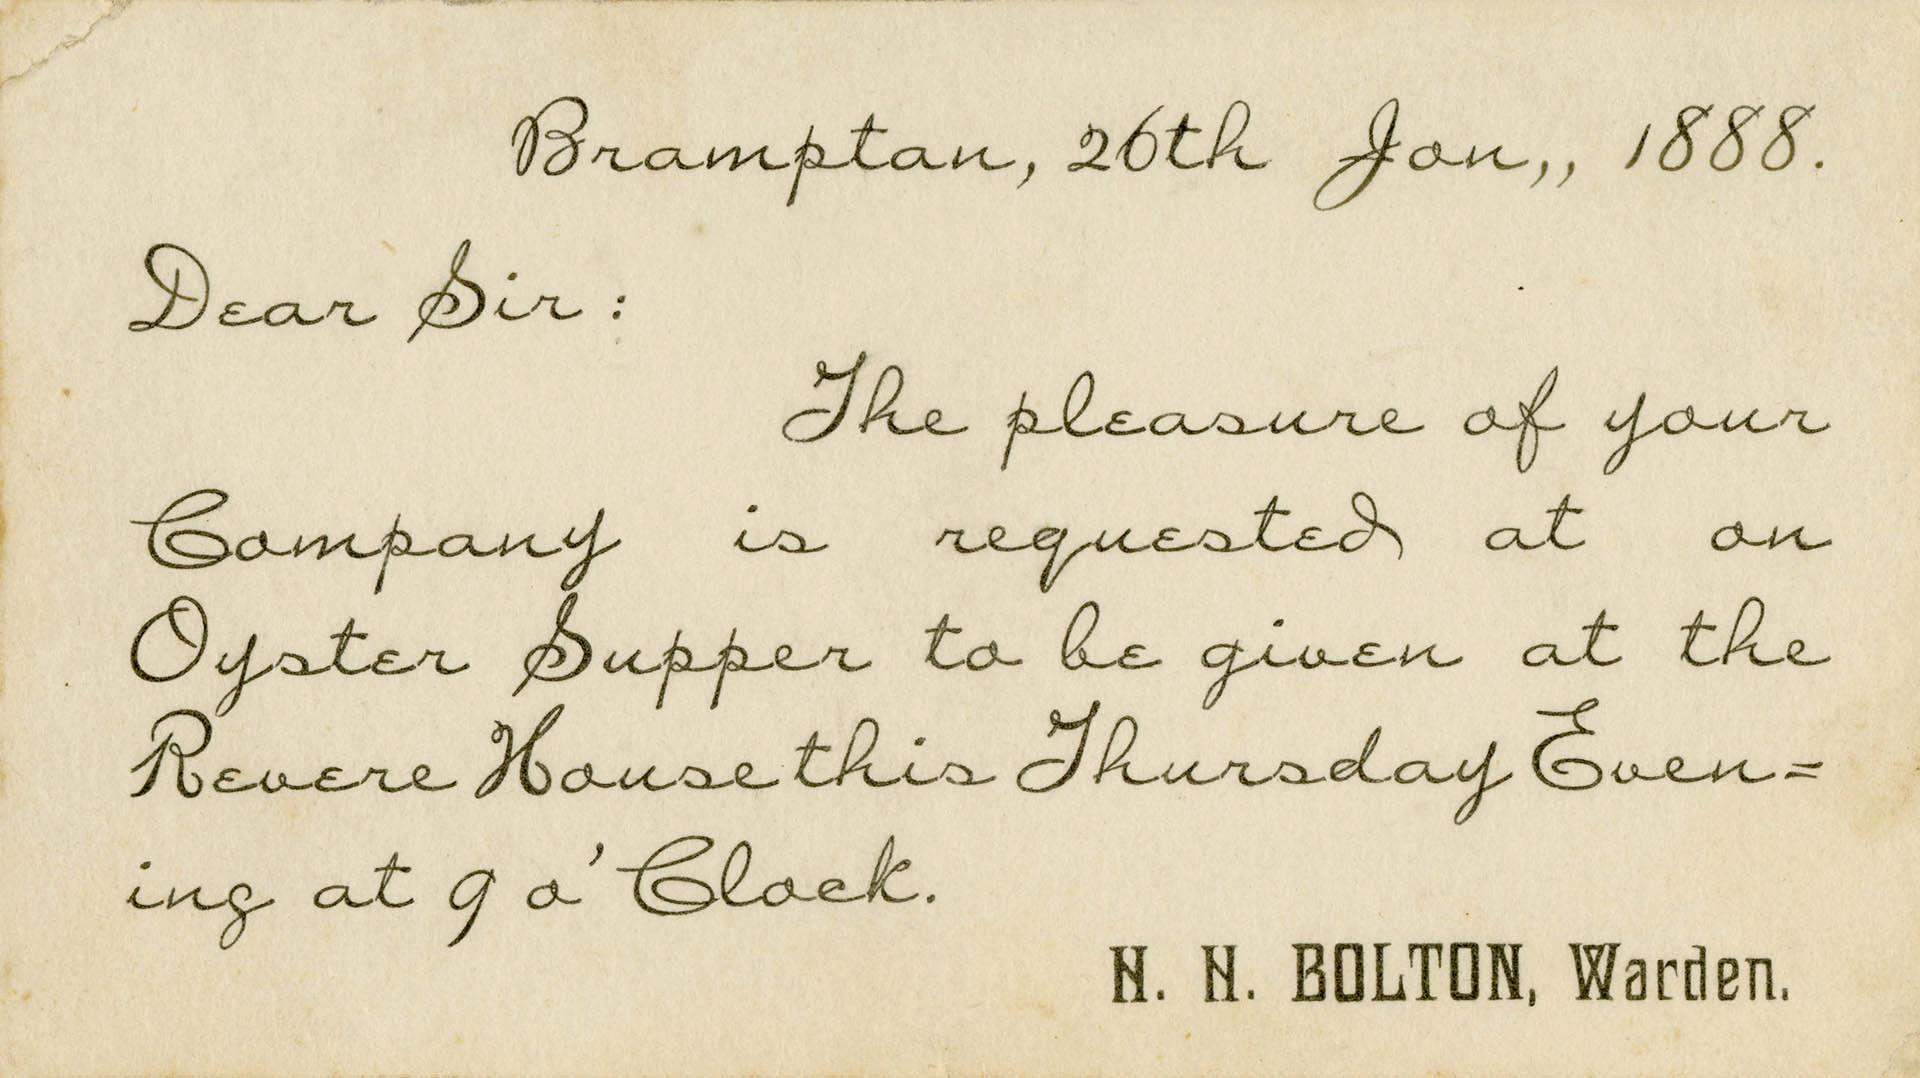 Bramptan, 26th Jan,, 1888.
Dear Sir:
The pleasure of your
Company is requested at an
Oyster Supper to be given at the
Revere House this Thursday Even=
ing at 9 o'Clock.
H. H. BOLTON, Warden.